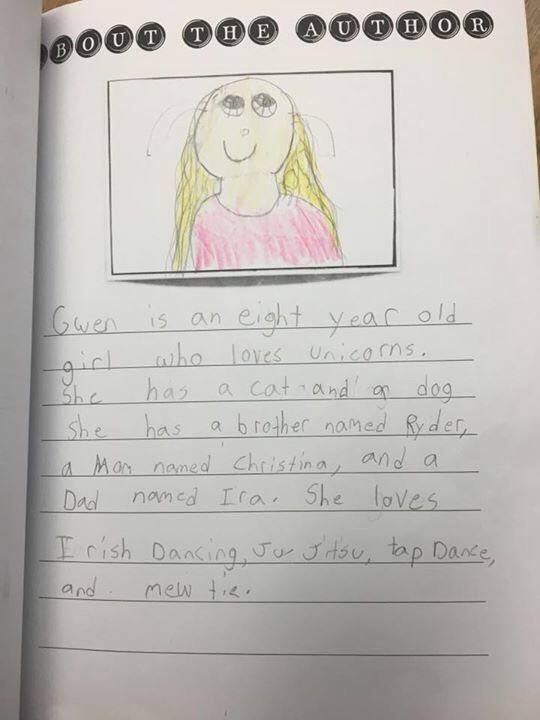 BOUT THE AUTHOR
Gwen is an eight year old
girl who loves unicorns.
She has a cat and a dog
She has a brother named Ryder,
a Mom named Christina, and a
Dad named Ira. She loves
Irish Dancing, Ju Jitsu, tap Dance,
and mew tie.